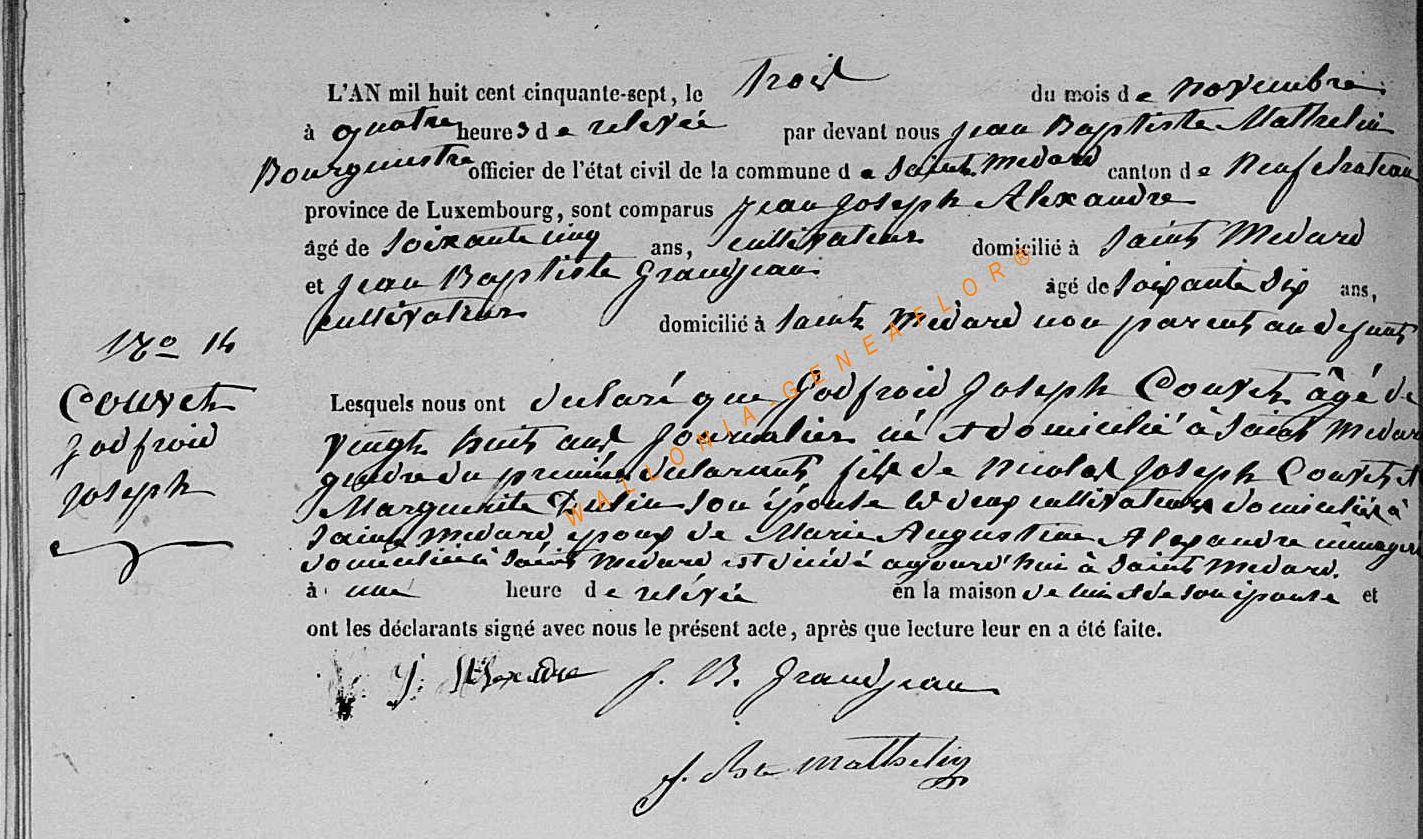 L'AN mil huit cent cinquante-sept, le trois du mois de novembre
à quatre heures de relevée par devant nous Jean Baptiste Mathelin
Bourgmestre officier de l'état civil de la commune de Saint Medard canton de Neufchateau
province de Luxembourg, sont comparus Jean Joseph Alexandre
âgé de soixante cinq ans, cultivateur domicilié à Saint Medard
et Jean Baptiste Grandjean âgé de soixante dix ans,
cultivateur domicilié à Saint Medard non parent au defunt
No 14
Couvet
Godfroid
Joseph
Lesquels nous ont declaré que Godfroid Joseph Couvet âgé de
vingt huit ans journalier né et domicilié à Saint Medard
gendre du premier declarant, fils de Nicolas Joseph Couvet et
Marguerite son épouse les deux cultivateurs domiciliés à
Saint Medard, epoux de Marie Augustine Alexandre ménagère
domiciliée à Saint Medard est décédé aujourd'hui à Saint Medard.
à une heure de relévée en la maison de lui et de son épouse et
ont les déclarants signé avec nous le présent acte, après que lecture leur en a été faite.
J. Alexandre J. B. Grandjean
J. Bte Mathelin
WALLONIA-GENEAFLOR®